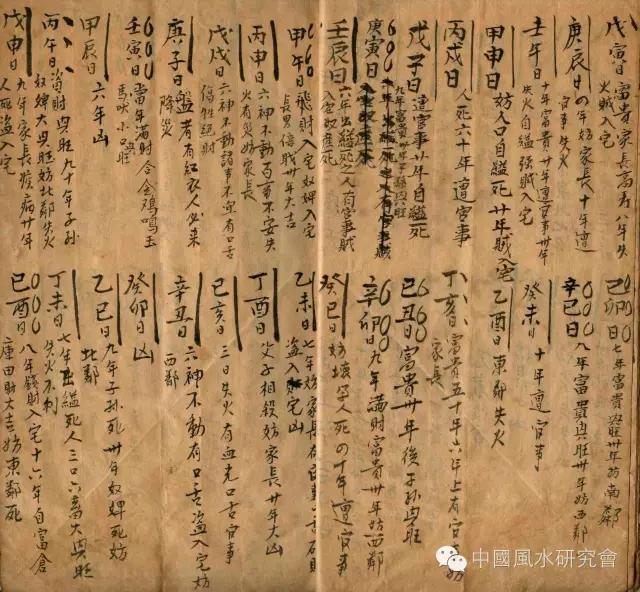 戊寅日 妨家長高寿八年失
火賊入宅
庚辰日 の年妨家長十年遭
官事失火
壬午日 十年富貴廿年遭官事卅年
失火自縊強賊入宅
甲申日 妨人口自縊死廿年賊入宅
丙戌日 人死六十年遭官事
戊子日 遭官事廿年自縊死
九年富貴廿年子孫興旺
庚寅日
壬辰日 六年出縊死之人有官事賊
入宅
甲午日 飛財入宅奴婢入宅
長男傷賊卅年大吉
丙申日 六神不動百事不安失
火有災妨家長
戊戌日 六神不動諸事不宜有口舌
傷牲絕財
庚子日 盤者有紅衣人必來
降災
壬寅日 當年滿財合金鷄鳴玉
馬吠小口旺
甲辰日 六年凶
丙午日 滿財興旺九十年子孫
奴婢大興旺妨北鄰失火
戊申日 九年家長疾病廿年
人死盜入宅
己卯日 七年富貴興旺卅年妨南鄰
辛巳日 八年富貴興旺卅年妨西鄰
癸未日 十年遭官事
乙酉日 東鄰失火
丁亥日 富貴五十年六年上有官事妨
家長
己丑日 富貴卅年後子孫興旺
辛卯日 九年滿財富貴卅年妨西鄰
癸巳日 妨壞宅人死の十年遭官事
乙未日 七年妨家長有官事
盜入宅凶
丁酉日 父子相殺妨家長廿年大凶
己亥日 三日失火有血光口舌官事
辛丑日 六神不動有口舌盜入宅妨
西鄰
癸卯日 凶
乙巳日 九年子孫死卅年奴婢死妨
北鄰
丁未日 七年出縊死人三口六畜大興旺
失火不利
己酉日 八年錢財入宅十六年自富倉
庫田財大吉妨東鄰死
中國風水研究會